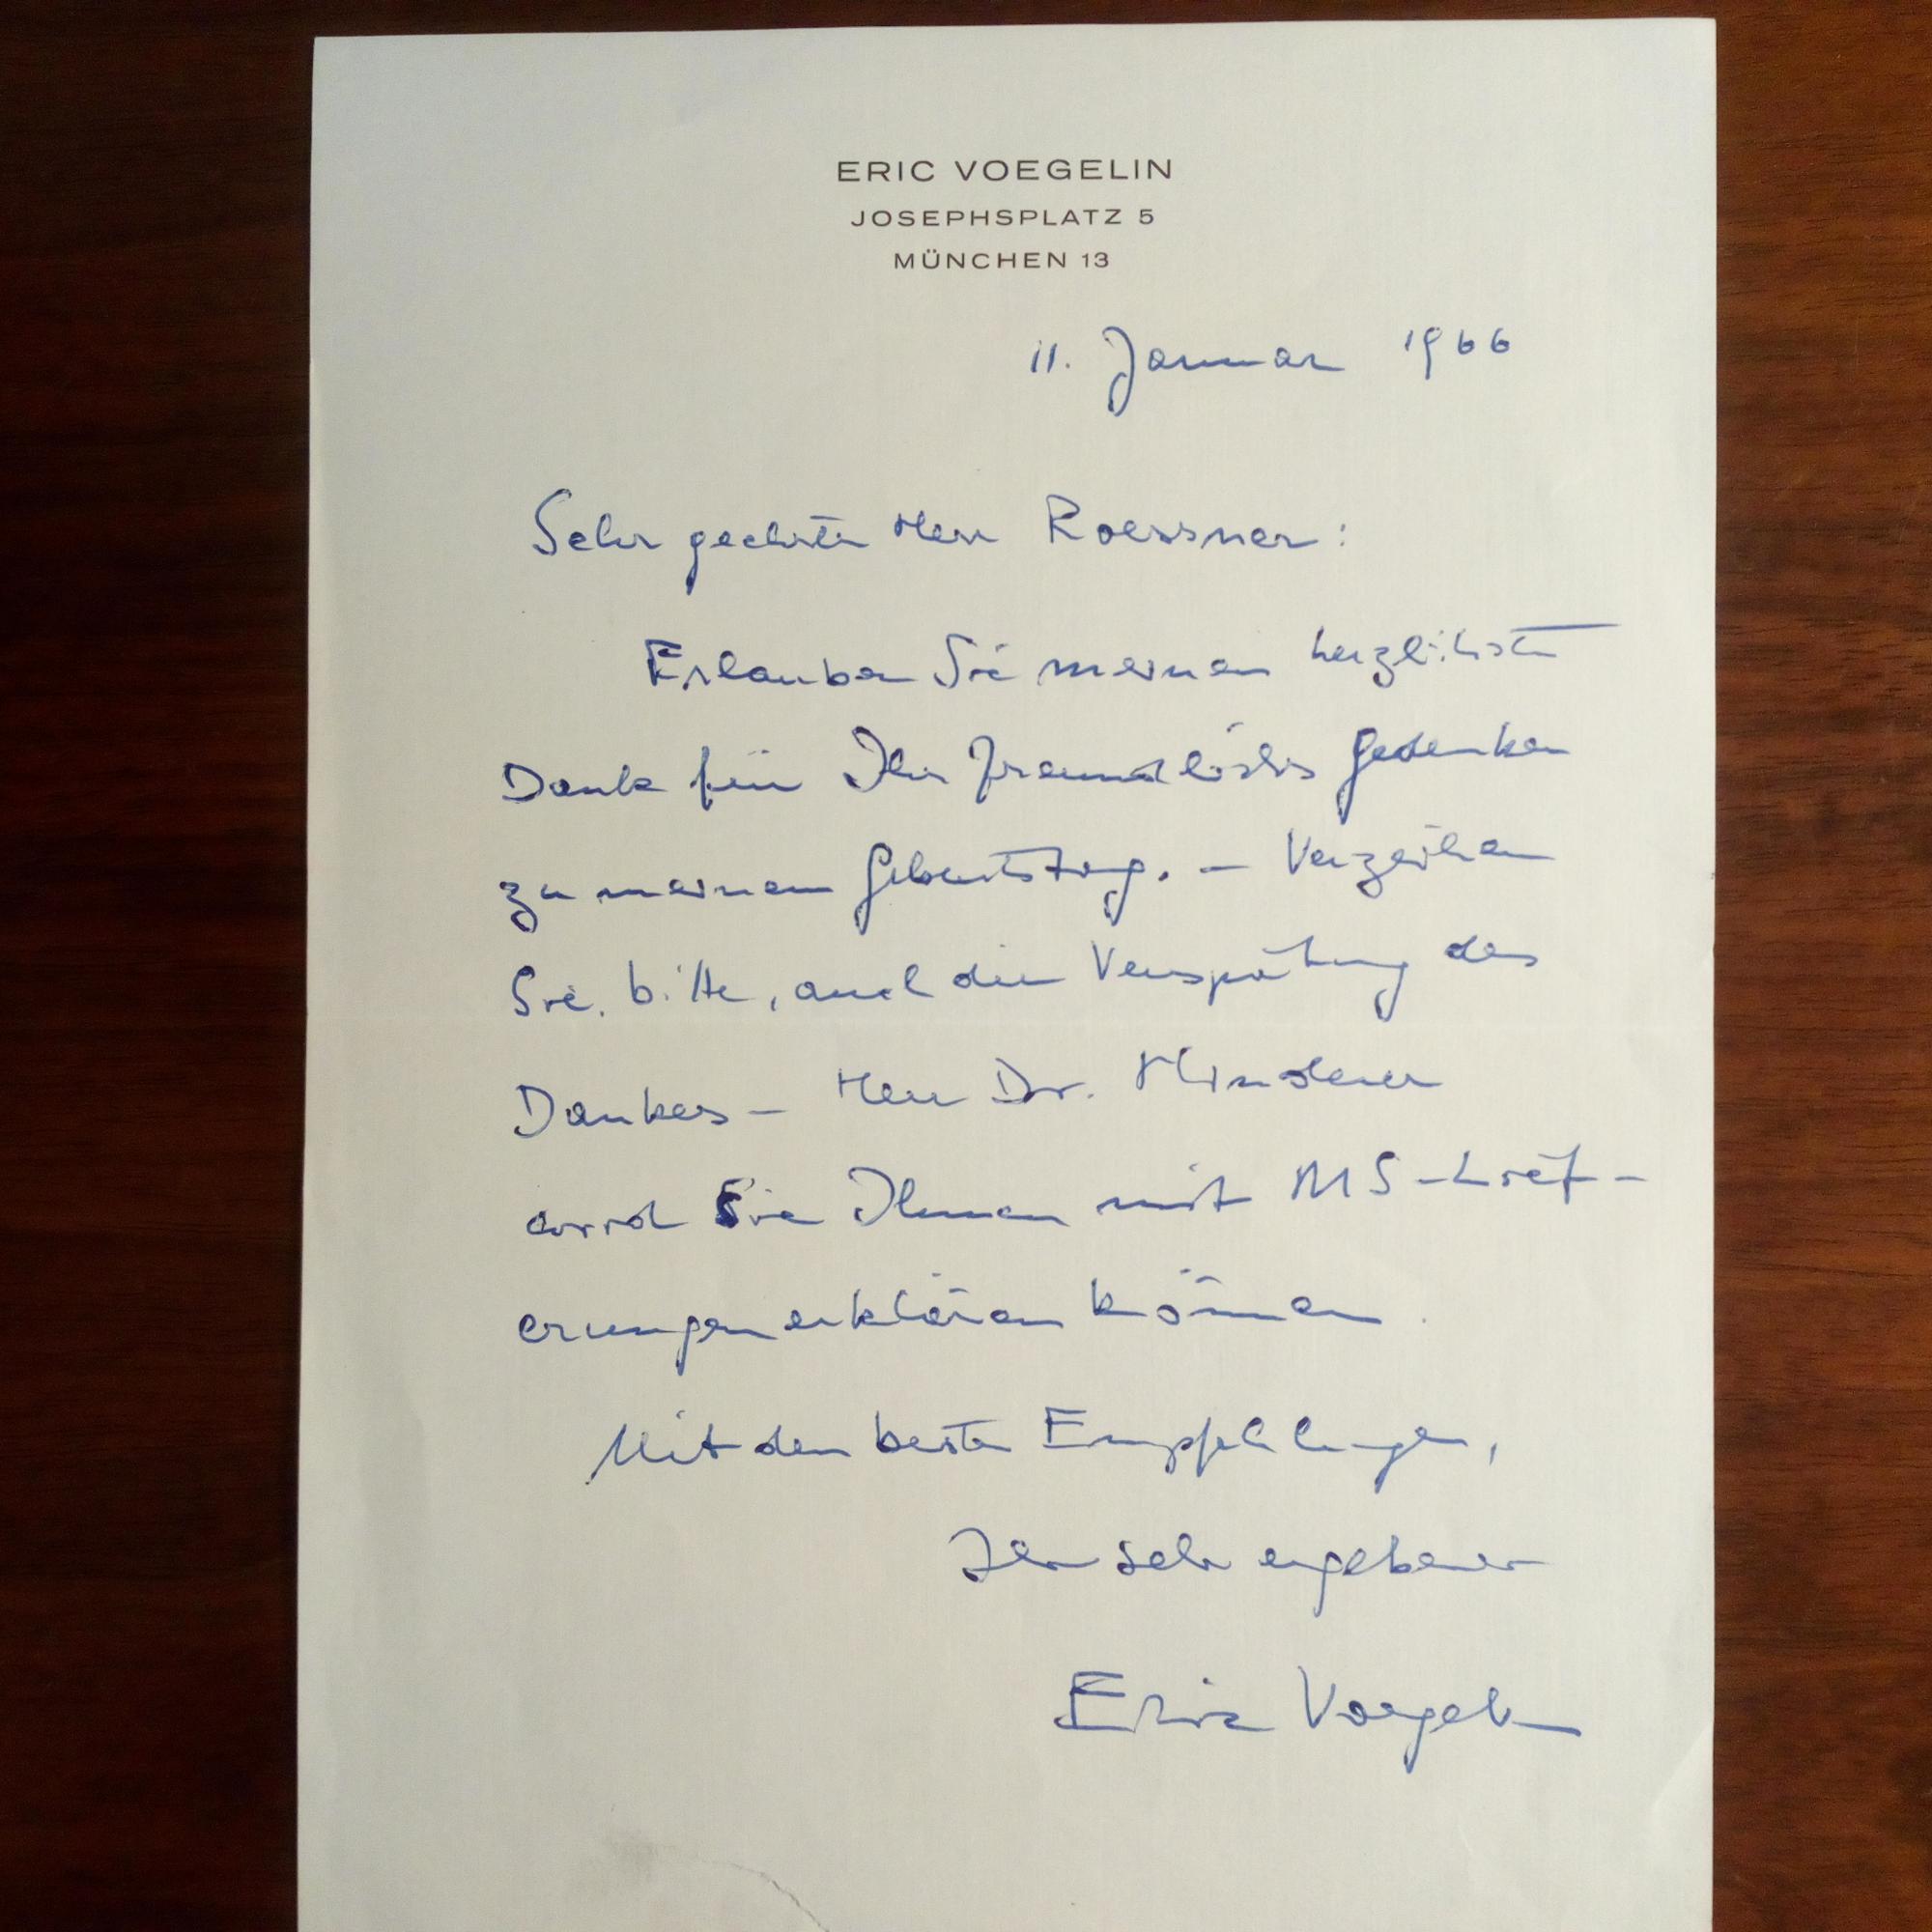 ERIC VOEGELIN
JOSEPHSPLATZ 5
MÜNCHEN 13
11. Januar 1966
Sehr geehrter Herr Roessner:
Erlauben Sie meinen herzlichsten
Dank für Ihr freundliches Gedenken
zu meinem Geburtstag. – Verzeihen
Sie, bitte, auch die Verspätung des
Dankes – Herr Dr. Minderer
wird sie Ihnen mit MS-Lief-
erungen erklären können.
Mit den besten Empfehlungen,
Ihr sehr ergebener
Eric Voegelin